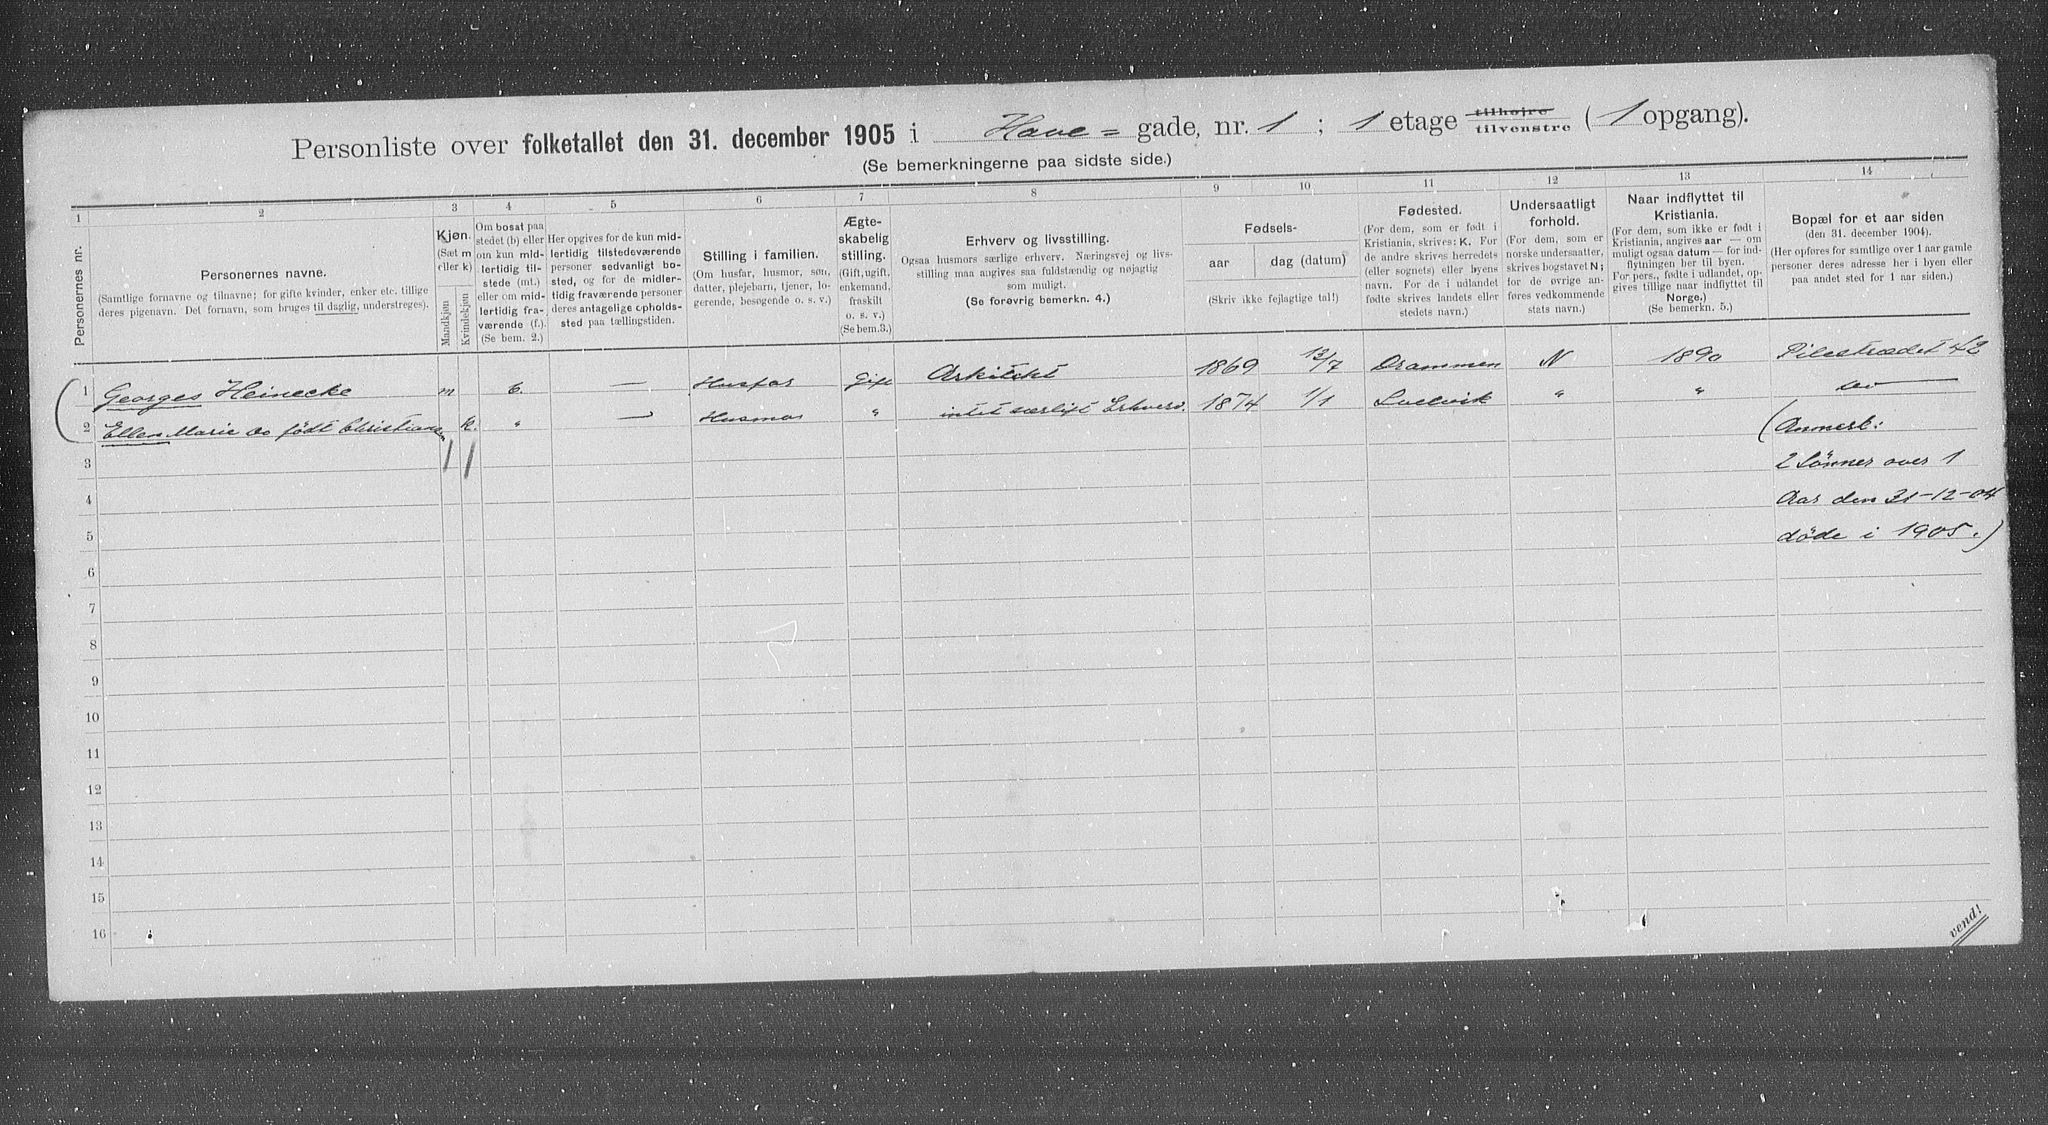 Personliste over folketallet den 31. december 1905 i Have= gade, nr. 1 ; 1 etage tilhøjre tilvenstre ( 1 opgang).
(Se bemerkningerne paa sidste side.)
1 2 3 4 5 6 7 8 9 10 11 12 13 14
Personernes nr.
Personernes navne.
(Samtlige fornavne og tilnavne; for gifte kvinder, enker etc. tillige
deres pigenavn. Det fornavn, som bruges til daglig, understreges).
Kjøn.
(Sæt m
eller k)
Mandkjøn
Kvindekjøn
Om bosat paa
stedet (b) eller
om kun mid-
lertidig til-
stede (mt.)
eller om mid-
lertidig fra-
værende (f.).
(Se bem. 2.)
Her opgives for de kun mid-
lertidig tilstedeværende
personer sedvanligt bo-
sted, og for de midler-
tidig fraværende personer
deres antagelige opholds-
sted paa tællingstiden.
Stilling i familien.
(Om husfar, husmor, søn,
datter, plejebarn, tjener, lo-
gerende, besøgende o. s. v.)
Ægte-
skabelig
stilling.
(Gift, ugift,
enkemand,
fraskilt
o. s. v.)
(Se bem. 3.)
Erhverv og livsstilling.
Ogsaa husmors særlige erhverv. Næringsvej og livs-
stilling maa angives saa fuldstændig og nøjagtig
som muligt.
(Se forøvrig bemerkn. 4.)
Fødsels-
aar
dag (datum)
(Skriv ikke fejlagtige tal!)
Fødested.
(For dem, som er født i
Kristiania, skrives: K. For
de andre skrives herredets
(eller sognets) eller byens
navn. For de i udlandet
fødte skrives landets eller
stedets navn.)
Undersaatligt
forhold.
(For dem, som er
norske undersaatter,
skrives bogstavet N;
for de øvrige an-
føres vedkommende
stats navn.)
Naar indflyttet til
Kristiania.
(For dem, som ikke er født i
Kristiania, angives aar — om
muligt ogsaa datum — for ind-
flytningen her til byen.
For pers., fødte i udlandet, op-
gives tillige naar indflyttet til
Norge.)
(Se bemerkn. 5.)
Bopæl for et aar siden
(den 31. december 1904).
(Her opføres for samtlige over 1 aar gamle
personer deres adresse her i byen eller
paa andet sted for 1 aar siden.)
1 Georges Heinecke m b. — Husfar Gift Arkitekt 1869 13/7 Drammen N 1890 Pilestrædet 42
2 Ellen Marie do født Christiansen k. " — Husmor " intet særligt Erhverv. 1874 1/1 Svelvik " " do
(Anmerk:
3 2 Sönner over 1
4 Aar den 31-12-04
5 döde i 1905.)
6
7
8
9
10
11
12
13
14
15
16
vend!